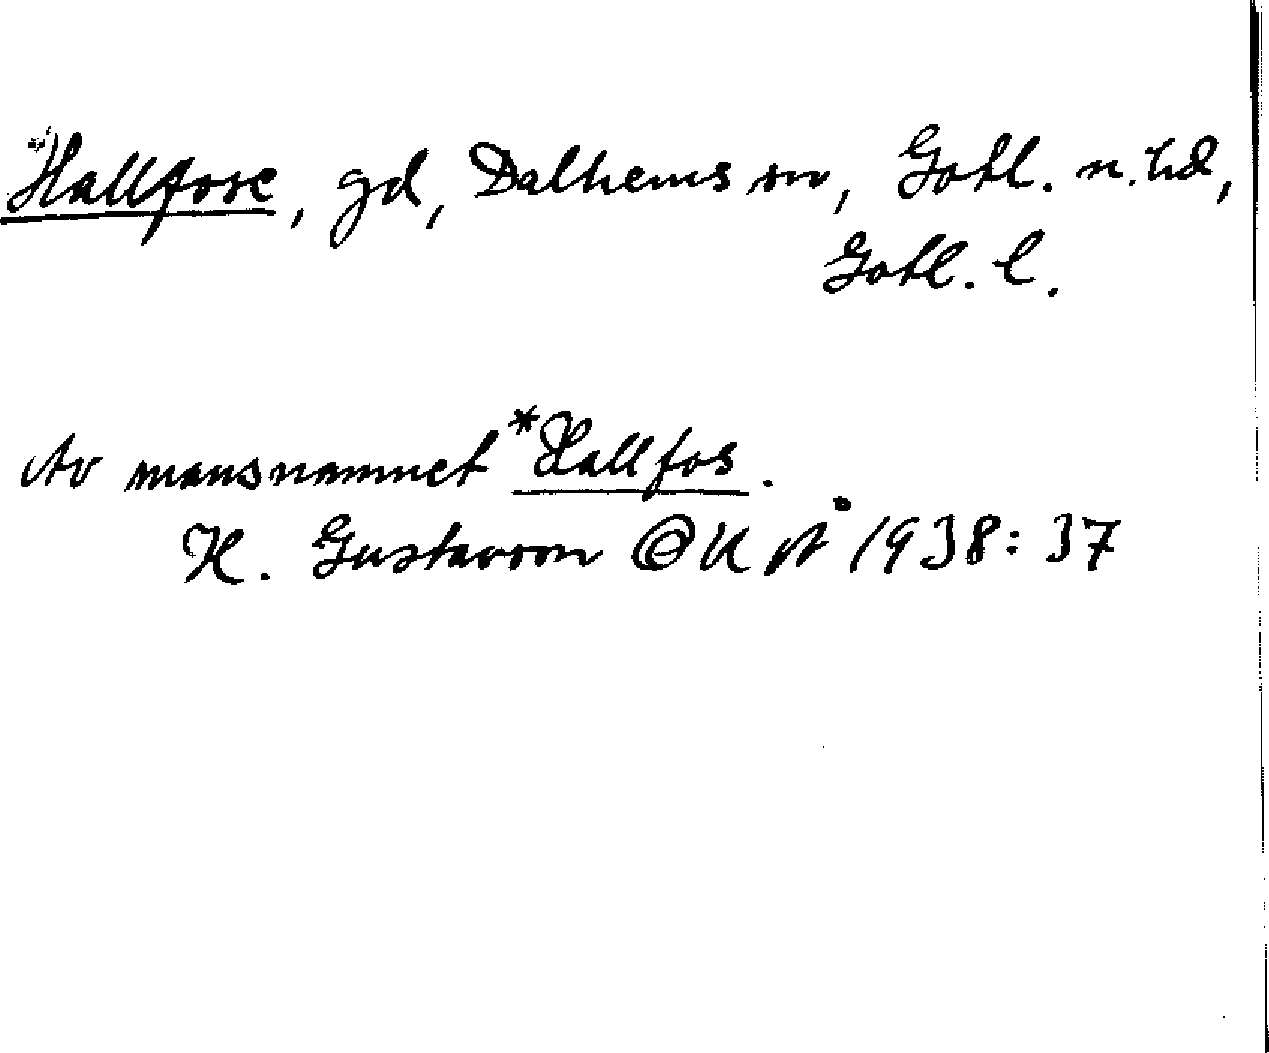 Hallfose, gd, Dalhems sn, Gotl. n. hd,
Gotl. l.
Av mansnamnet *Hallfos.
H. Gustavson OUÅ 1938: 37